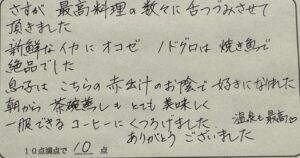 さすが 最高料理の数々に舌つづみさせて
頂きました
新鮮なイカにオコゼ ノドグロは焼き魚で
絶品でした
息子はこちらの赤出汁のお陰で好きになれた
朝から茶碗蒸しもとても美味しく
一服できるコーヒーにくつろげました
温泉も最高♡
ありがとうございました
10点満点で 10 点